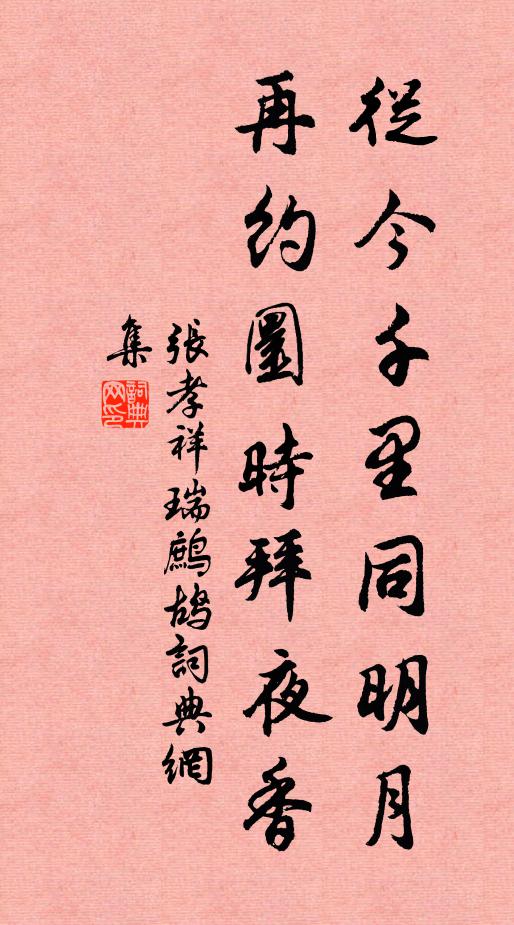 從今千里同明月
再約圓時拜夜香
張孝祥瑞鷓鴣詞典網
集
詞典
网印